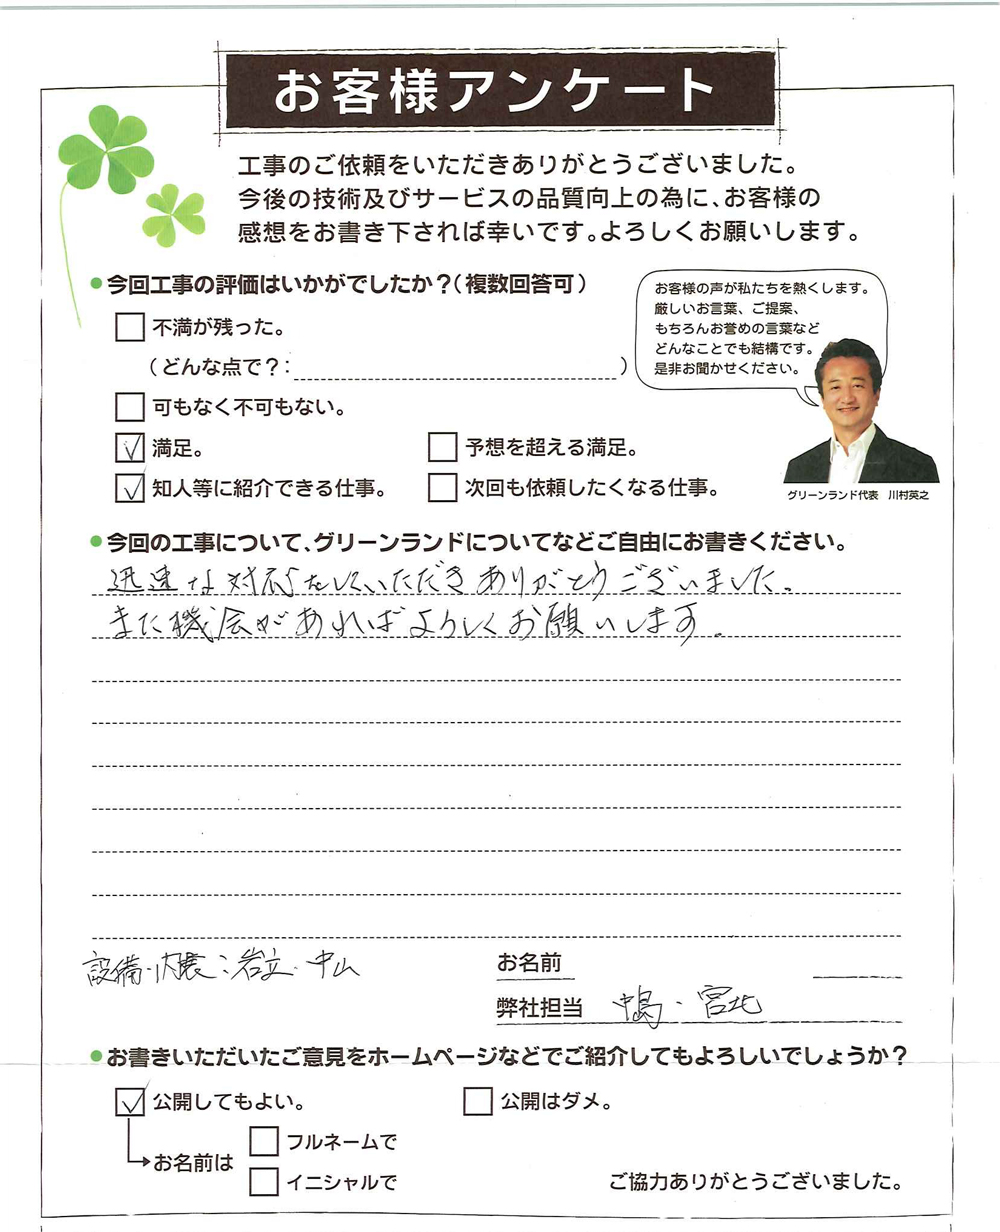 お客様アンケート
工事のご依頼をいただきありがとうございました。
今後の技術及びサービスの品質向上の為に、お客様の
感想をお書き下されば幸いです。よろしくお願いします。
●今回工事の評価はいかがでしたか？（複数回答可）
不満が残った。
（どんな点で？：　　　）
可もなく不可もない。
満足。
予想を超える満足。
知人等に紹介できる仕事。
次回も依頼したくなる仕事。
お客様の声が私たちを熱くします。
厳しいお言葉、ご提案、
もちろんお誉めの言葉など
どんなことでも結構です。
是非お聞かせください。
グリーンランド代表　川村英之
●今回の工事について、グリーンランドについてなどご自由にお書きください。
迅速な対応をしていただきありがとうございました。
また機会があればよろしくお願いします。
設備・内装：岩立・中山
お名前
弊社担当　中島・宮北
●お書きいただいたご意見をホームページなどでご紹介してもよろしいでしょうか？
公開してもよい。
公開はダメ。
お名前は
フルネームで
イニシャルで
ご協力ありがとうございました。